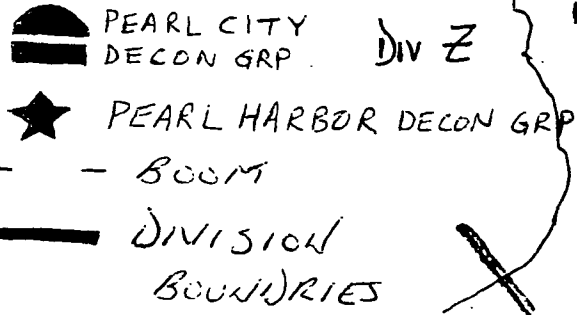 PEARL CITY
DECON GRP.
Div Z
PEARL HARBOR DECON GRP
BOOM
DIVISION
BOUNDRIES